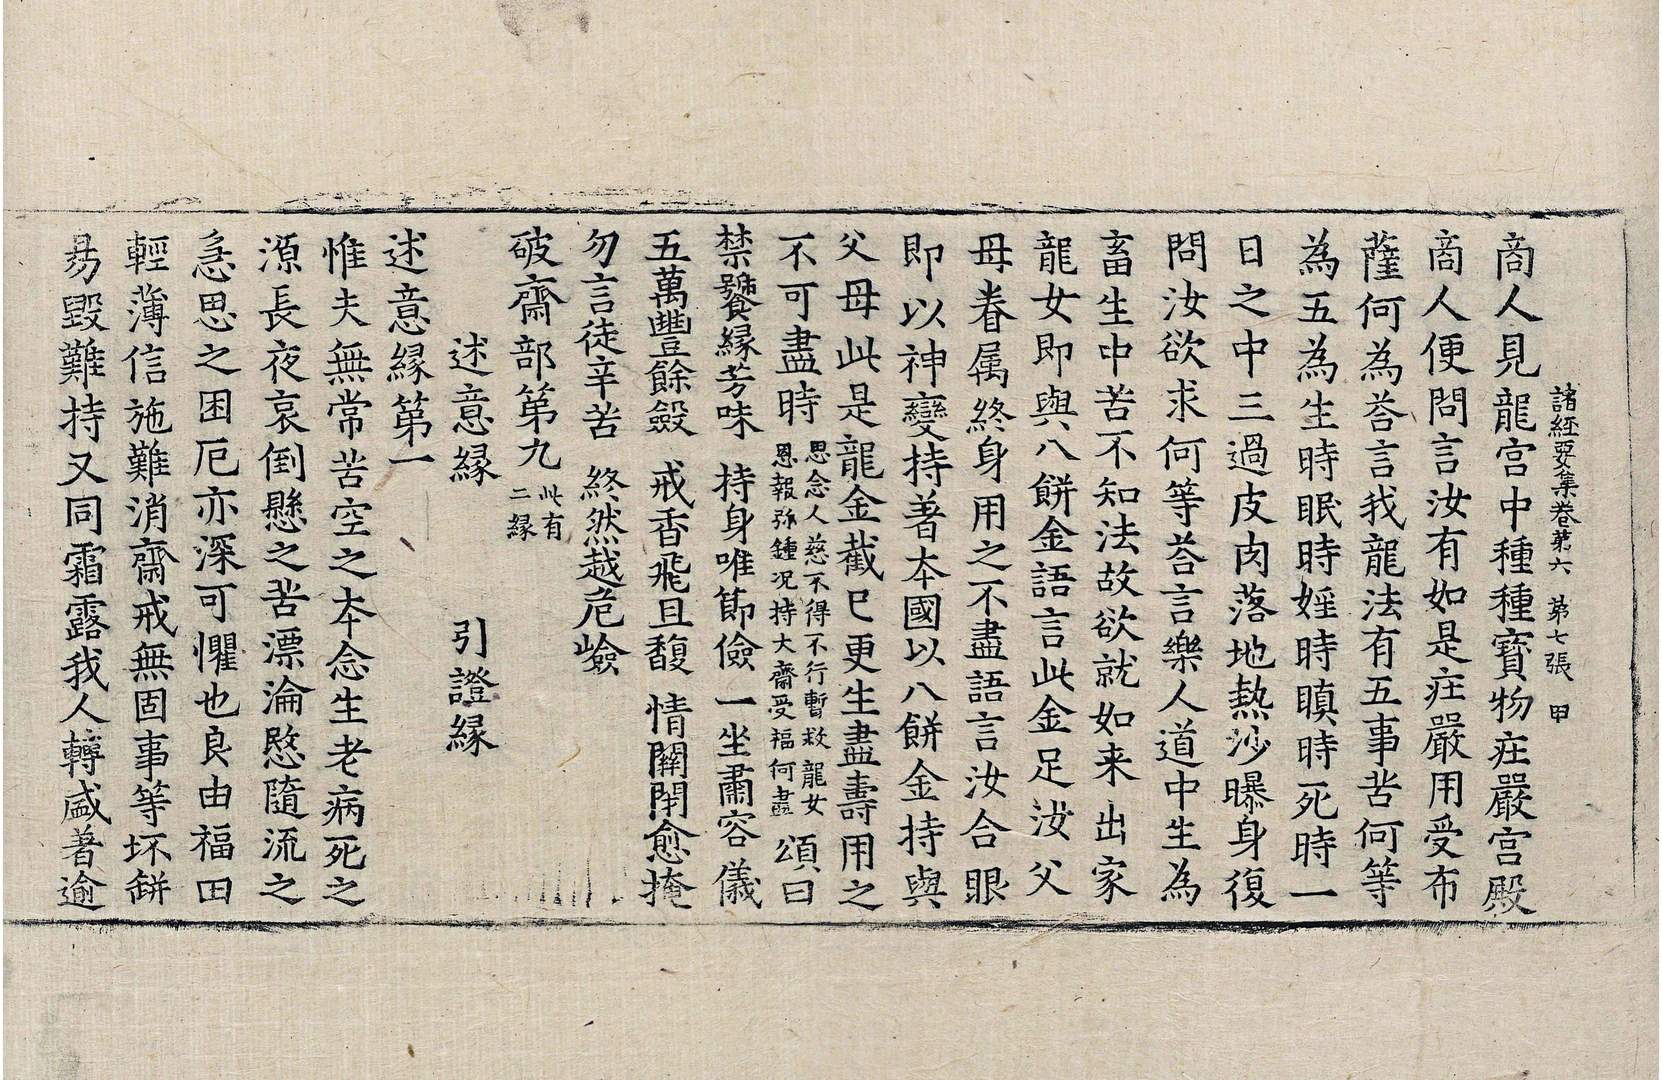 諸經要集卷第六 第七張 甲
商人見龍宮中種種寶物庄嚴宮殿
商人便問言汝有如是庄嚴用受布
薩何為荅言我龍法有五事苦何等
為五為生時眠時婬時瞋時死時一
日之中三過皮肉落地熱沙曝身復
問汝欲求何等荅言樂人道中生為
畜生中苦不知法故欲就如来出家
龍女即與八餅金語言此金足汝父
母眷属終身用之不盡語言汝合眼
即以神變持著本國以八餅金持與
父母此是龍金截已更生盡壽用之
不可盡時 思念人慈不得不行暫救龍女恩報弥鍾况持大齋受福何盡 頌曰
禁饕緣芳味 持身唯節儉 一坐肅容儀
五萬豐餘斂 戒香飛且馥 情關閇愈掩
勿言徒辛苦 終然越危嶮
破齋部第九 此有二緣
述意緣 引證緣
述意緣第一
惟夫無常苦空之本念生老病死之
源長夜哀倒懸之苦漂淪愍隨流之
急思之困厄亦深可懼也良由福田
輕薄信施難消齋戒無固事等坏缾
易毀難持又同霜露我人轉盛著逾